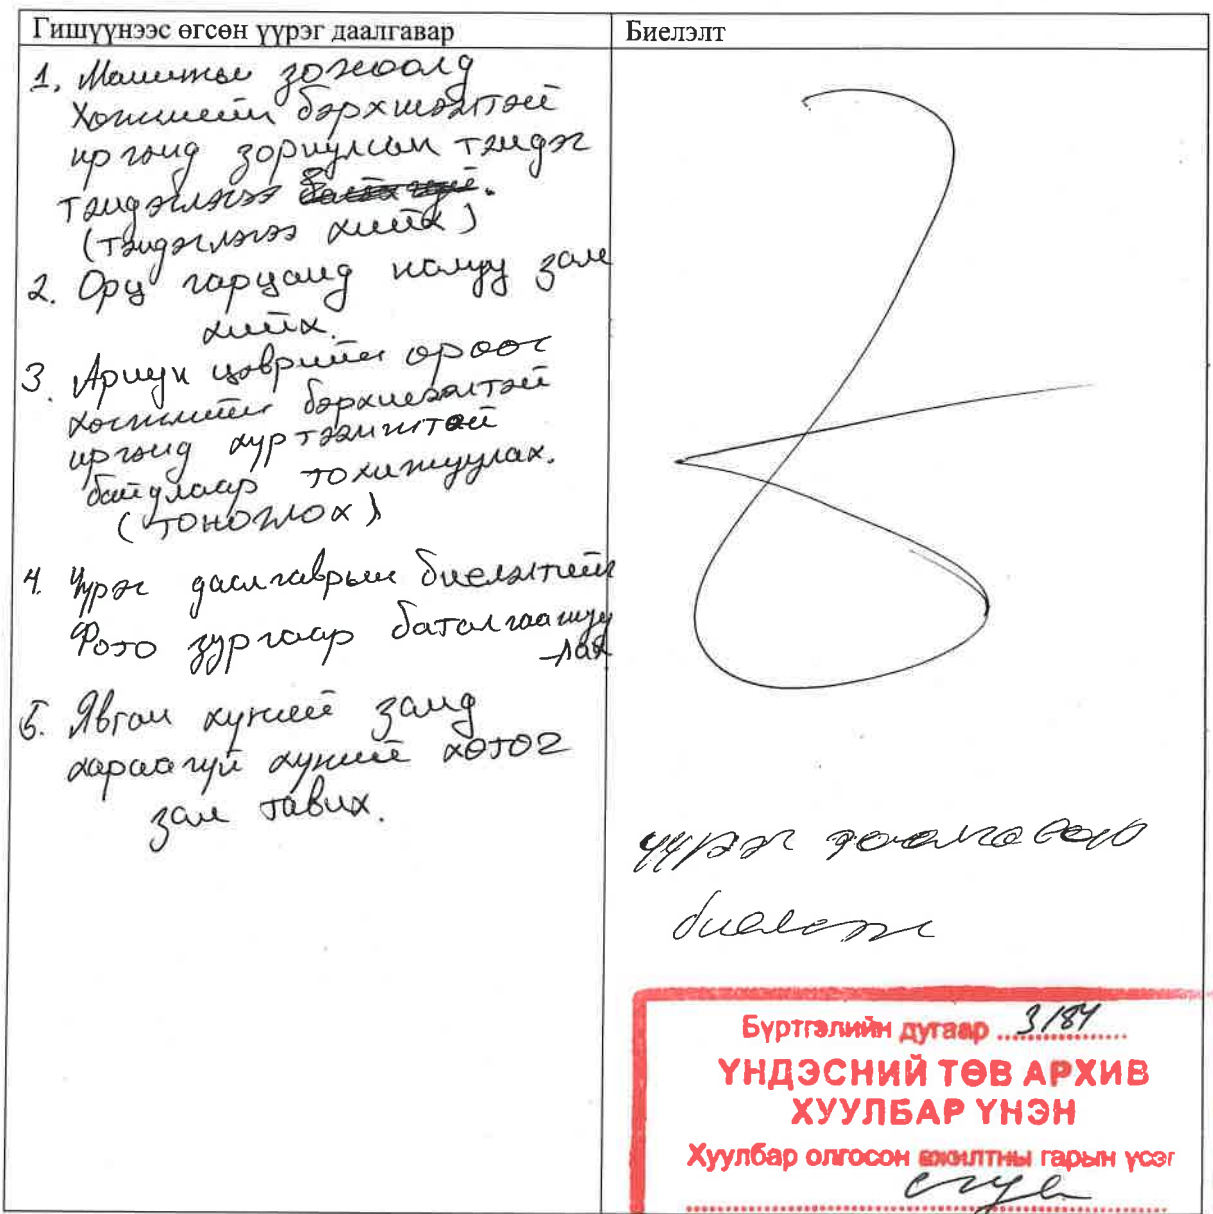 Гишүүнээс өгсөн үүрэг даалгавар
1. Машины зогсоолд
Хөгжлийн бэрхшээлтэй
иргэнд зориулсан тэмдэг
тэмдэглэгээ
(тэмдэглэгээ хийх)
2. Орц гарцанд налуу зам
хийх.
3. Ариун цэврийн өрөөг
хөгжлийн бэрхшээлтэй
иргэнд хүртээмжтэй
байдлаар тохижуулах.
(тоноглох)
4. Үүрэг даалгаврын биелэлтийг
Фото зургаар баталгаажуу
-лах
5. Явган хүний замд
хараагүй хүний хөтөч
зам тавих.
Биелэлт
үүрэг даалгавар
биелсэн
Бүртгэлийн дугаар 3/84
ҮНДЭСНИЙ ТӨВ АРХИВ
ХУУЛБАР ҮНЭН
Хуулбар олгосон ажилтны гарын үсэг